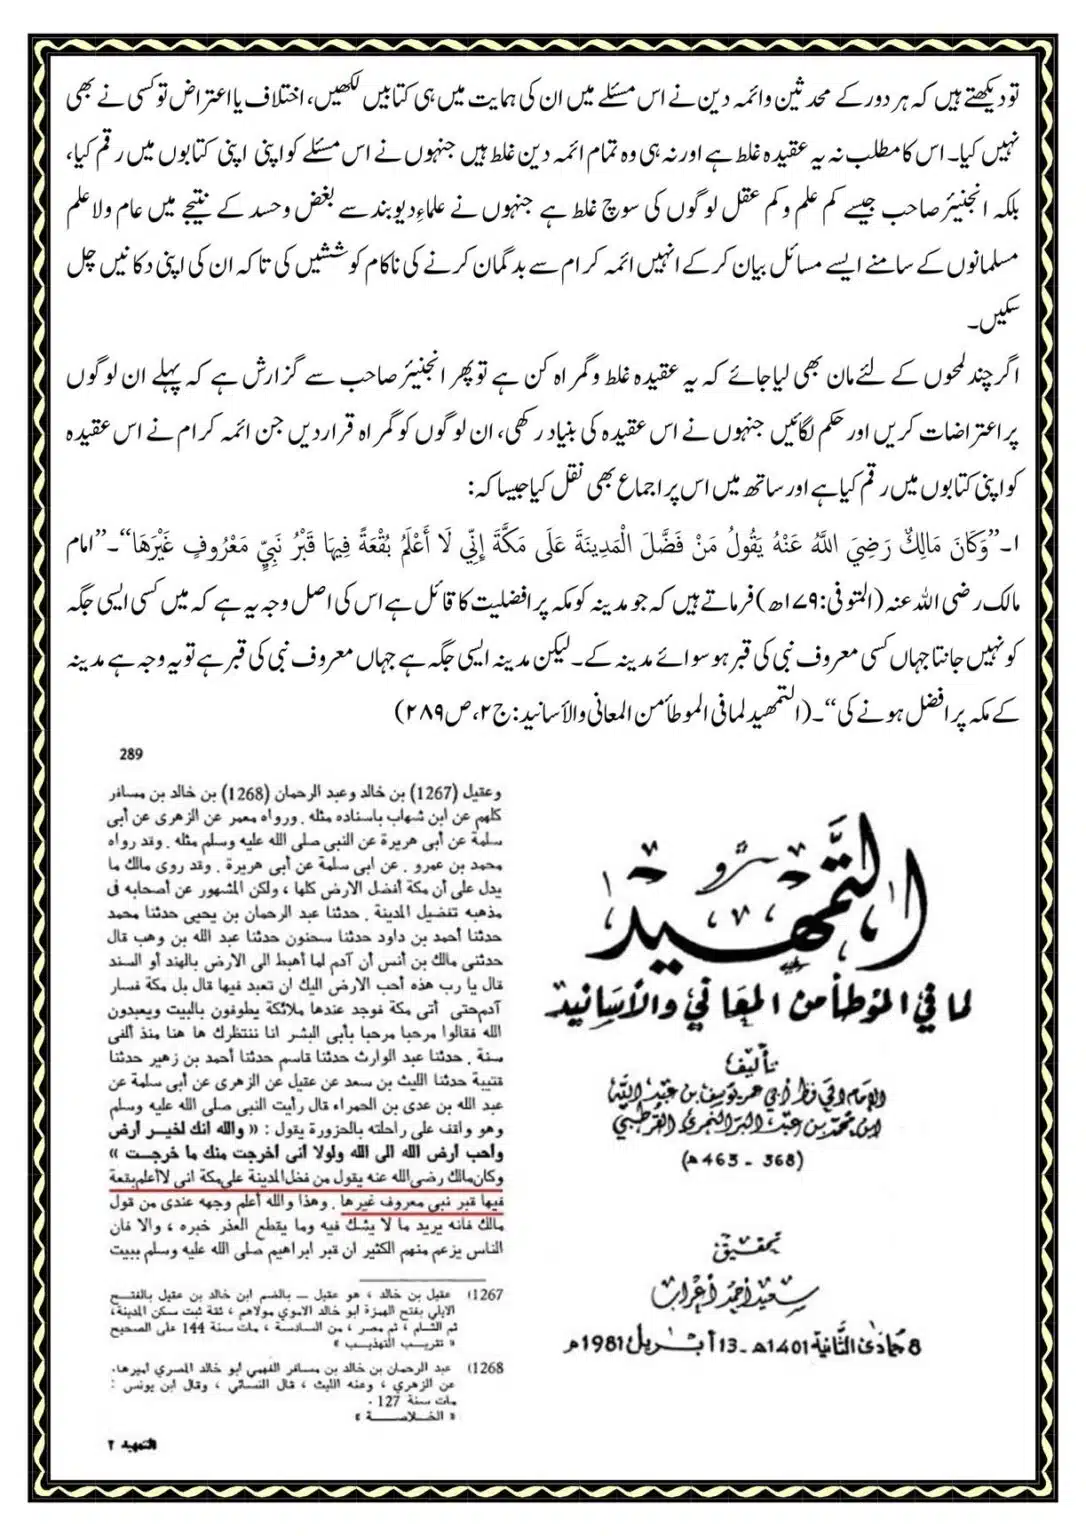 تو دیکھتے ہیں کہ ہر دور کے محدثین وائمہ دین نے اس مسئلے میں ان کی حمایت میں ہی کتابیں لکھیں، اختلاف یا اعتراض تو کسی نے بھی
نہیں کیا۔ اس کا مطلب نہ یہ عقیدہ غلط ہے اور نہ ہی وہ تمام ائمہ دین غلط ہیں جنہوں نے اس مسئلے کو اپنی اپنی کتابوں میں رقم کیا،
بلکہ انجنیئر صاحب جیسے کم علم و کم عقل لوگوں کی سوچ غلط ہے جنہوں نے علماءِ دیوبند سے بغض و حسد کے نتیجے میں عام ولا علم
مسلمانوں کے سامنے ایسے مسائل بیان کر کے انہیں ائمہ کرام سے بدگمان کرنے کی ناکام کوششیں کی تاکہ ان کی اپنی دکانیں چل
سکیں۔
اگر چند لمحوں کے لئے مان بھی لیا جائے کہ یہ عقیدہ غلط و گمراہ کن ہے تو پھر انجنیئر صاحب سے گزارش ہے کہ پہلے ان لوگوں
پر اعتراضات کریں اور حکم لگائیں جنہوں نے اس عقیدہ کی بنیاد رکھی، ان لوگوں کو گمراہ قرار دیں جن ائمہ کرام نے اس عقیدہ
کو اپنی کتابوں میں رقم کیا ہے اور ساتھ میں اس پر اجماع بھی نقل کیا جیسا کہ:
۱۔”وَكَانَ مَالِكٌ رَضِيَ اللَّهُ عَنْهُ يَقُولُ مَنْ فَضَّلَ الْمَدِينَةَ عَلَى مَكَّةَ إِنِّي لَا أَعْلَمُ بُقْعَةً فِيهَا قَبْرُ نَبِيٍّ مَعْرُوفٍ غَيْرَهَا“۔”امام
مالک رضی اللہ عنہ (المتوفی: ۱۷۹ھ) فرماتے ہیں کہ جو مدینہ کو مکہ پر افضلیت کا قائل ہے اس کی اصل وجہ یہ ہے کہ میں کسی ایسی جگہ
کو نہیں جانتا جہاں کسی معروف نبی کی قبر ہو سوائے مدینہ کے۔ لیکن مدینہ ایسی جگہ ہے جہاں معروف نبی کی قبر ہے تو یہ وجہ ہے مدینہ
کے مکہ پر افضل ہونے کی“۔ (التمھید لما فی الموطأ من المعانی والأسانید: ج۲، ص۲۸۹)
289
وعقيل (1267) بن خالد وعبد الرحمان (1268) بن خالد بن مسافر
كلهم عن ابن شهاب باسناده مثله . ورواه معمر عن الزهرى عن أبى
سلمة عن أبى هريرة عن النبى صلى الله عليه وسلم مثله . وقد رواه
محمد بن عمرو . عن ابى سلمة عن أبى هريرة . وقد روى مالك ما
يدل على أن مكة أفضل الارض كلها ، ولكن المشهور عن أصحابه فى
مذهبه تفضيل المدينة . حدثنا عبد الرحمان بن يحيى حدثنا محمد
حدثنا أحمد بن داود حدثنا سحنون حدثنا عبد الله بن وهب قال
حدثنى مالك بن أنس أن آدم لما أهبط الى الارض بالهند أو السند
قال يا رب هذه أحب الارض اليك ان تعبد فيها قال بل مكة فسار
آدم حتى أتى مكة فوجد عندها ملائكة يطوفون بالبيت ويعبدون
الله فقالوا مرحبا مرحبا بأبى البشر انا ننتظرك ها هنا منذ ألفى
سنة . حدثنا عبد الوارث حدثنا قاسم حدثنا أحمد بن زهير حدثنا
قتيبة حدثنا الليث بن سعد عن عقيل عن الزهرى عن أبى سلمة عن
عبد الله بن عدى بن الحمراء قال رأيت النبى صلى الله عليه وسلم
وهو واقف على راحلته بالحزورة يقول : « والله انك لخير أرض
وأحب أرض الله الى الله ولولا أنى أخرجت منك ما خرجت »
وكان مالك رضى الله عنه يقول من فضل المدينة على مكة انى لا أعلم بقعة
فيها قبر نبى معروف غيرها . وهذا والله أعلم وجهه عندى من قول
مالك فانه يريد ما لا يشك فيه وما يقطع العذر خبره ، والا فان
الناس يزعم منهم الكثير ان قبر ابراهيم صلى الله عليه وسلم ببيت
1267) عقيل بن خالد ، هو عقيل – بالضم ابن خالد بن عقيل بالفتح
الايلى بفتح الهمزة أبو خالد الاموي مولاهم ، ثقة ثبت سكن المدينة،
ثم الشام ، ثم مصر ، من السادسة ، مات سنة 144 على الصحيح
« تقريب التهذيب »
1268) عبد الرحمان بن خالد بن مسافر الفهمي أبو خالد المصري أميرها.
عن الزهري ، وعنه الليث ، قال النسائي ، وقال ابن يونس :
مات سنة 127 .
« الخلاصة »
التمهيد ٢
التمهيد
لما في الموطأ من المعاني والأسانيد
تأليف
الإمام الحافظ أبي عمر يوسف بن عبد الله
ابن محمد بن عبد البر النمري القرطبي
(368 - 463 هـ)
تحقيق
سعيد أحمد أعراب
8 جمادى الثانية 1401هـ - 13 أبريل 1981م